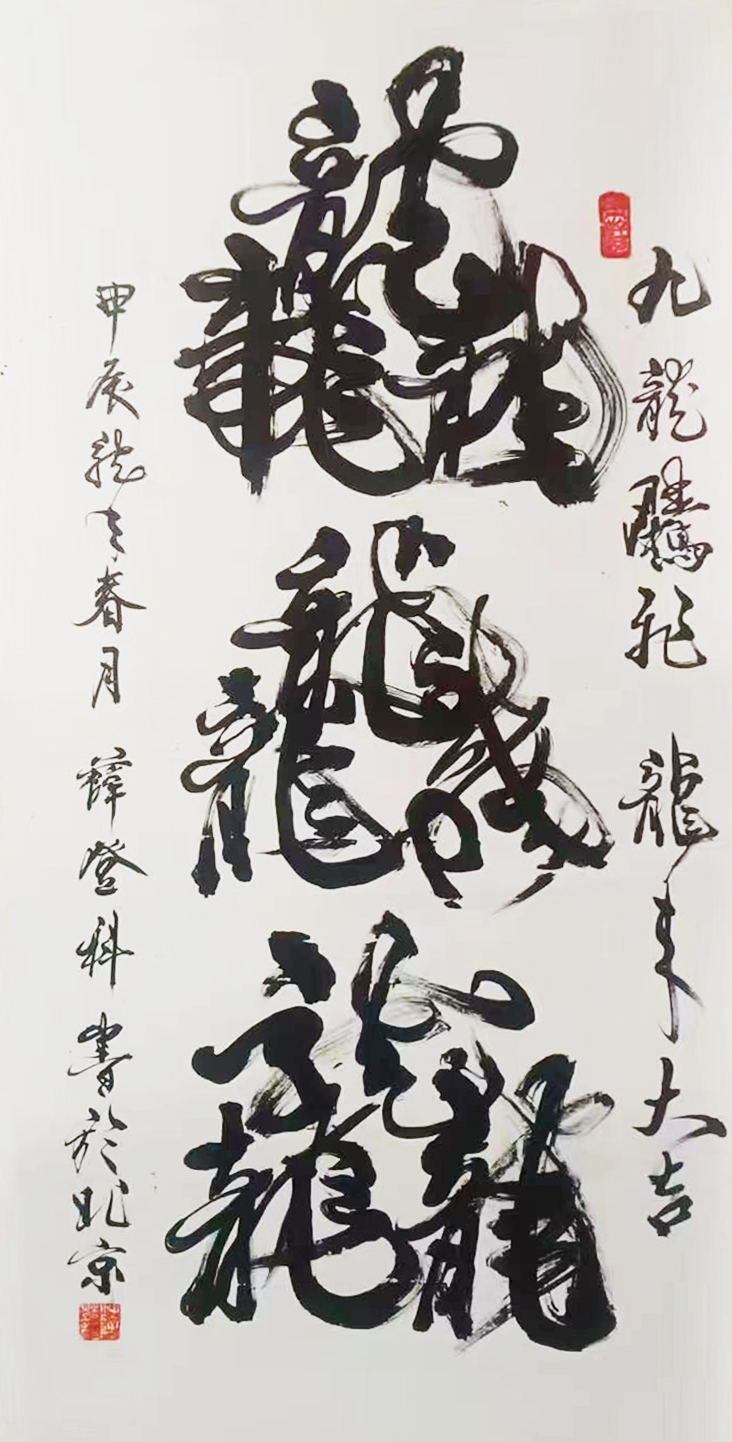 九龍騰飛 龍年大吉
龍龍龍
龍龍龍
龍龍龍
甲辰龍年春月 登科書於北京